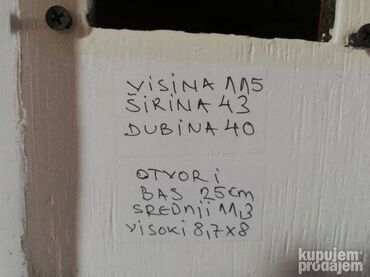 VISINA 115
ŠIRINA 43
DUBINA 40
OTVORI
BAS 25cm
SREDNJI 11,3
VISOKI 8,7x8
kupujem
prodajem